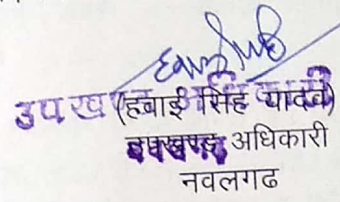 उपखण्ड अधिकारी
(हवाई सिंह यादव)
उपखण्ड अधिकारी
नवलगढ